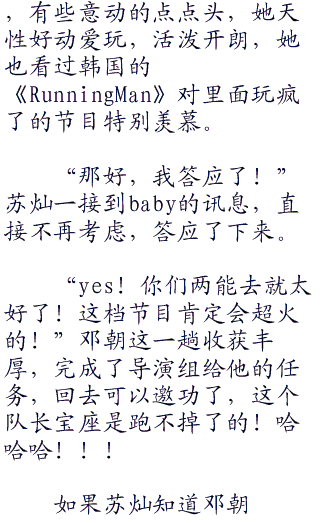 ，有些意动的点点头，她天
性好动爱玩，活泼开朗，她
也看过韩国的
《RunningMan》对里面玩疯
了的节目特别羡慕。
“那好，我答应了！”
苏灿一接到baby的讯息，直
接不再考虑，答应了下来。
“yes！你们两能去就太
好了！这档节目肯定会超火
的！”邓朝这一趟收获丰
厚，完成了导演组给他的任
务，回去可以邀功了，这个
队长宝座是跑不掉了的！哈
哈哈！！！
如果苏灿知道邓朝